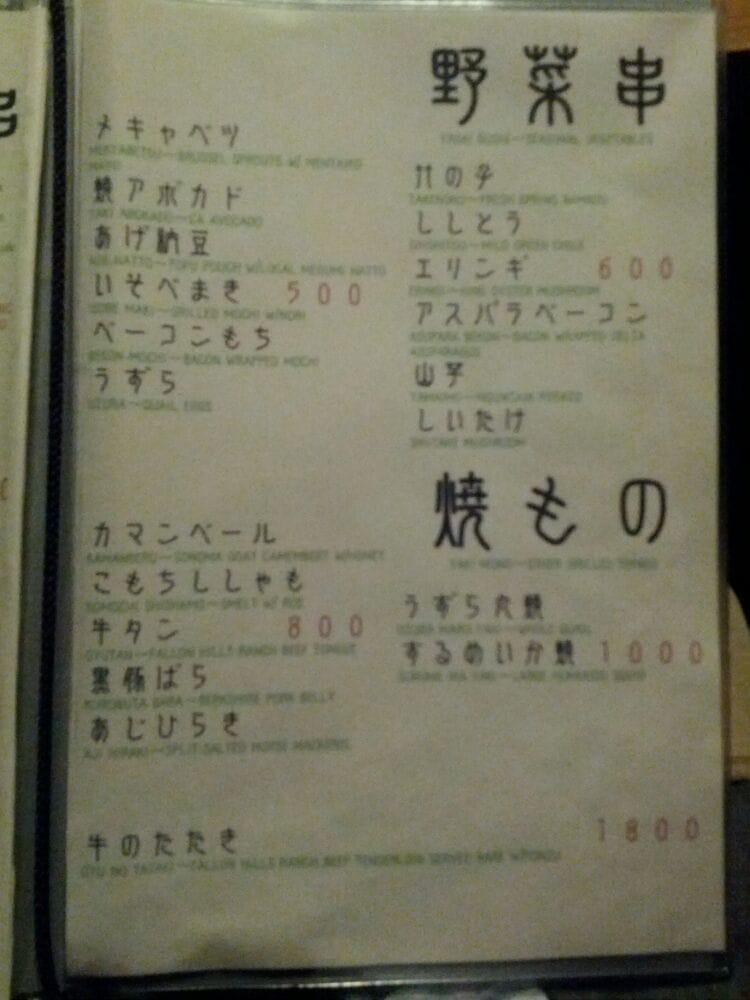 野菜串
YASAI GUSHI—SEASONAL VEGETABLES
竹の子
TAKENOKO—FRESH SPRING BAMBOO
ししとう
SHISHITOU—MILD GREEN CHILE
エリンギ 600
ERINGI—KING OYSTER MUSHROOM
アスパラベーコン
ASUPARA BEKON—BACON WRAPPED DELTA
ASPARAGUS
山芋
YAMAIMO—MOUNTAIN POTATO
しいたけ
SHIITAKE MUSHROOM
メキャベツ
MEKYABETSU—BRUSSEL SPROUTS W/ MENTAIKO
MAYO
焼アボカド
YAKI ABOKADO—CA AVOCADO
あげ納豆
AGE NATTO—TOFU POUCH W/LOCAL MEGUMI NATTO
いそべまき 500
ISOBE MAKI—GRILLED MOCHI W/NORI
ベーコンもち
BEKON MOCHI—BACON WRAPPED MOCHI
うずら
UZURA—QUAIL EGGS
焼もの
YAKI MONO—OTHER GRILLED THINGS
うずら丸焼
UZURA MARU YAKI—WHOLE QUAIL
するめいか焼 1000
SURUME IKA YAKI—LARGE HOKKAIDO SQUID
カマンベール
KAMANBERU—SONOMA GOAT CAMEMBERT W/HONEY
こもちししゃも
KOMOCHI SHISHAMO—SMELT W/ ROE
牛タン 800
GYUTAN—FALLON HILLS RANCH BEEF TONGUE
黒豚ばら
KUROBUTA BARA—BERKSHIRE PORK BELLY
あじひらき
AJI HIRAKI—SPLIT SALTED HORSE MACKEREL
牛のたたき 1800
GYU NO TATAKI—FALLON HILLS RANCH BEEF TENDERLOIN SERVED RARE W/PONZU